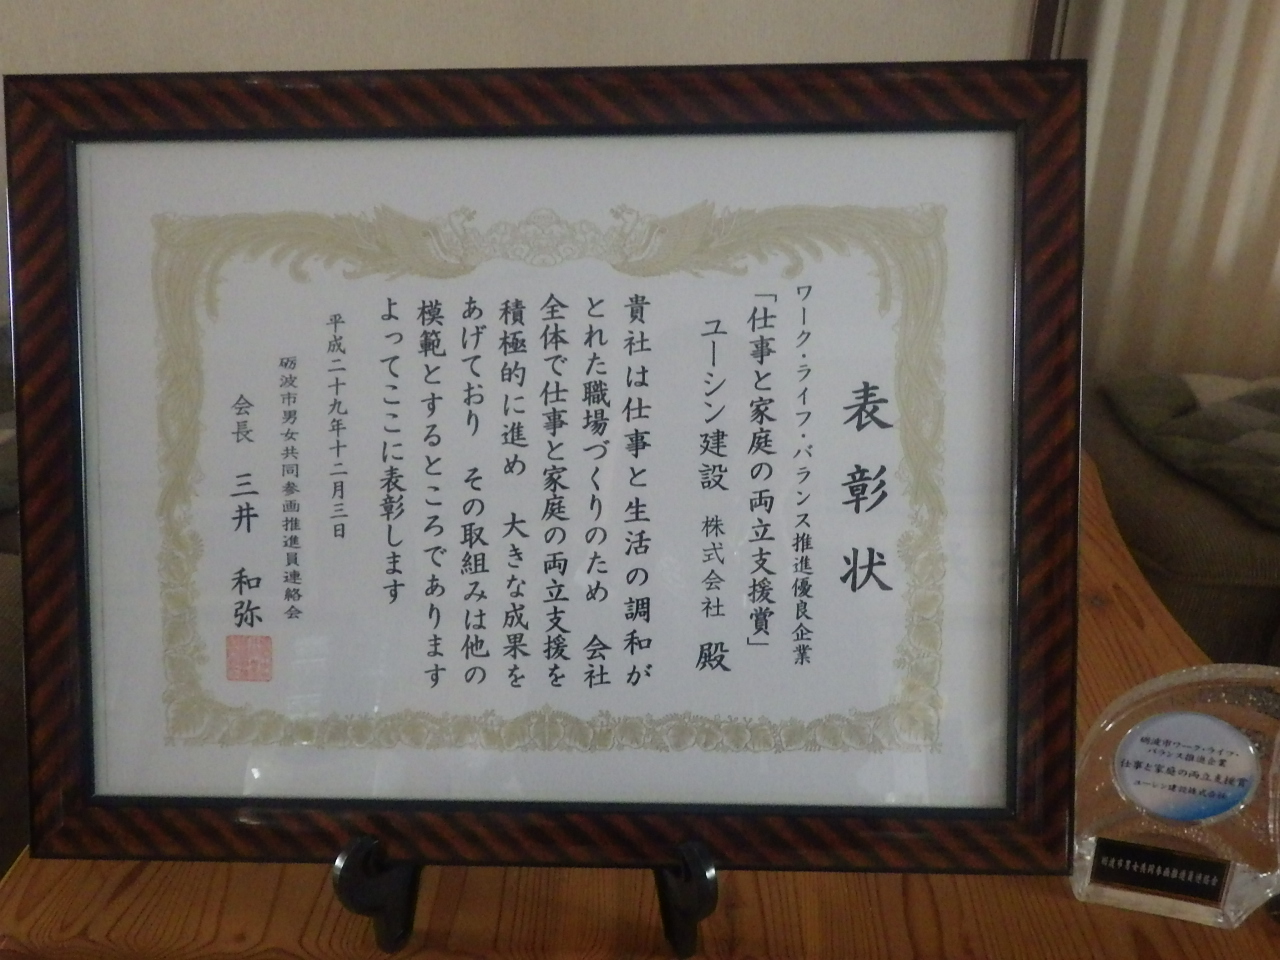 表彰状
ワーク・ライフ・バランス推進優良企業
「仕事と家庭の両立支援賞」
ユーシン建設 株式会社 殿
貴社は仕事と生活の調和が
とれた職場づくりのため 会社
全体で仕事と家庭の両立支援を
積極的に進め 大きな成果を
あげており その取組みは他の
模範とするところであります
よってここに表彰します
平成二十九年十二月三日
砺波市男女共同参画推進員連絡会
会長 三井 和弥
砺波市ワーク・ライフ・
バランス推進企業
仕事と家庭の両立支援賞
ユーシン建設株式会社
砺波市男女共同参画推進員連絡会